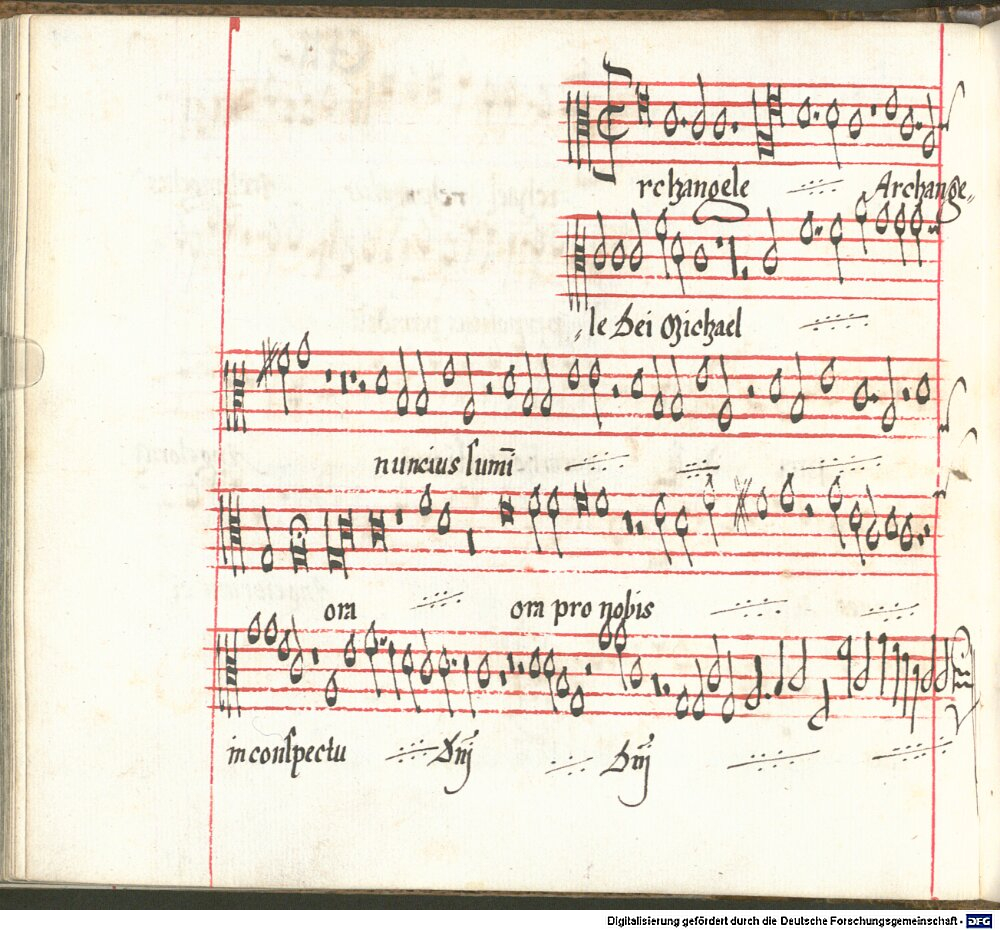 rchangele Archange„
„le Dei Michael
nuncius sum̄i
ora ora pro nobis
in conspectu Dnj Dnj
Digitalisierung gefördert durch die Deutsche Forschungsgemeinschaft - DFG